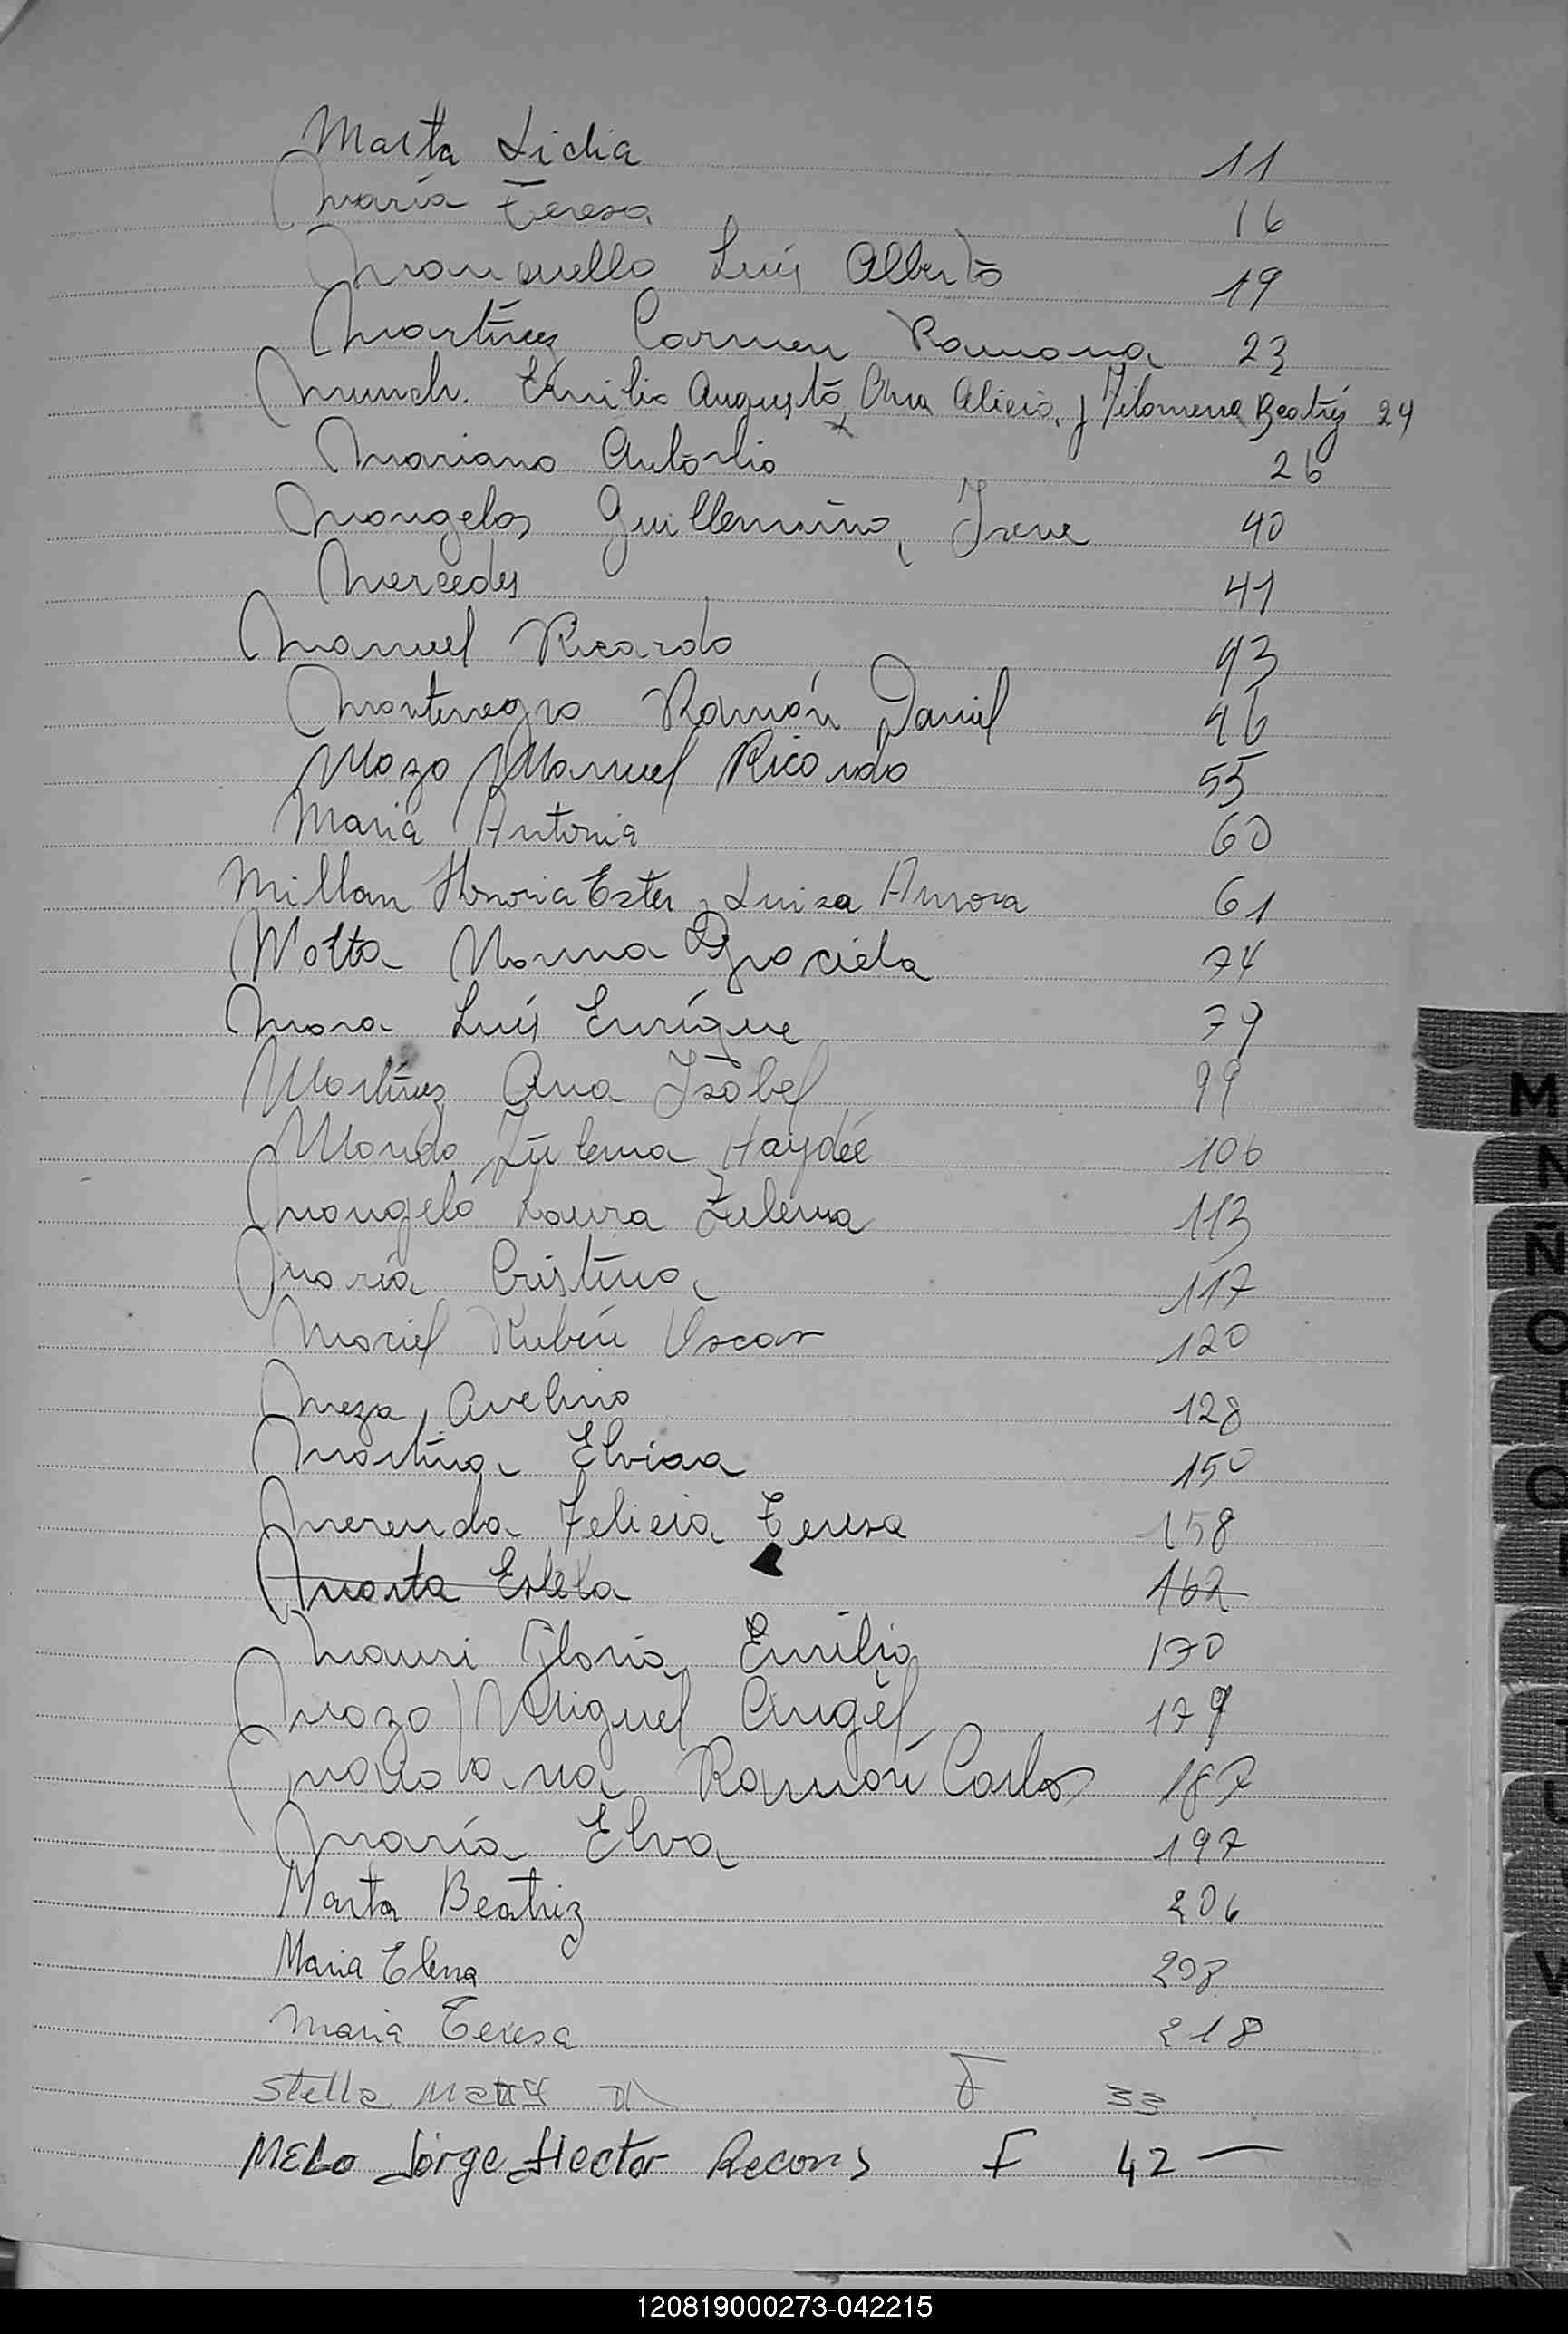 Marta Lidia 11
María Teresa 16
Luis Alberto 19
Martínez Carmen Ramona 23
Munch. Emilio Augusto, Ana Alicia, y Filomena Beatriz 24
Mariano Antonio 26
Mongelos Guillermina, Irene 40
Mercedes 41
Manuel Ricardo 43
Montenegro Ramón Daniel 46
Mozo Manuel Ricardo 55
Maria Antonia 60
Millan Honoria Ester y Luisa Aurora 61
Motta Norma Graciela 74
Mora Luis Enrique 79
Martínez Ana Isabel 99
Zulema Haydée 106
Mongeló Laura Zulema 113
María Cristina 117
Maciel Rubén Oscar 120
Meza Avelino 128
Martina Elviaa 150
Merenda Felicia Teresa 158
Marta Estela 162
Mauri Gloria Emilia 170
Mozo Miguel Angel 179
Ramón Carlos 187
María Elva 197
Marta Beatriz 206
Maria Elena 208
Maria Teresa 218
Stella F 33
MELO Jorge Hector Recons F 42 —
M
N
Ñ
O
Q
U
V
120819000273-042215